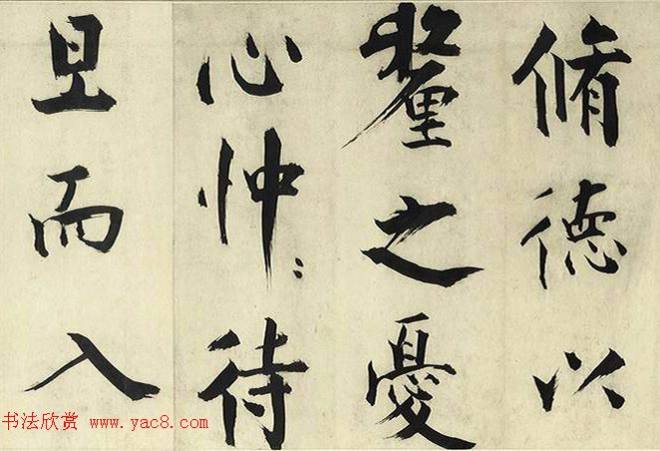 脩德以
釐之憂
心忡〻待
旦而入
书法欣赏 www.yac8.com